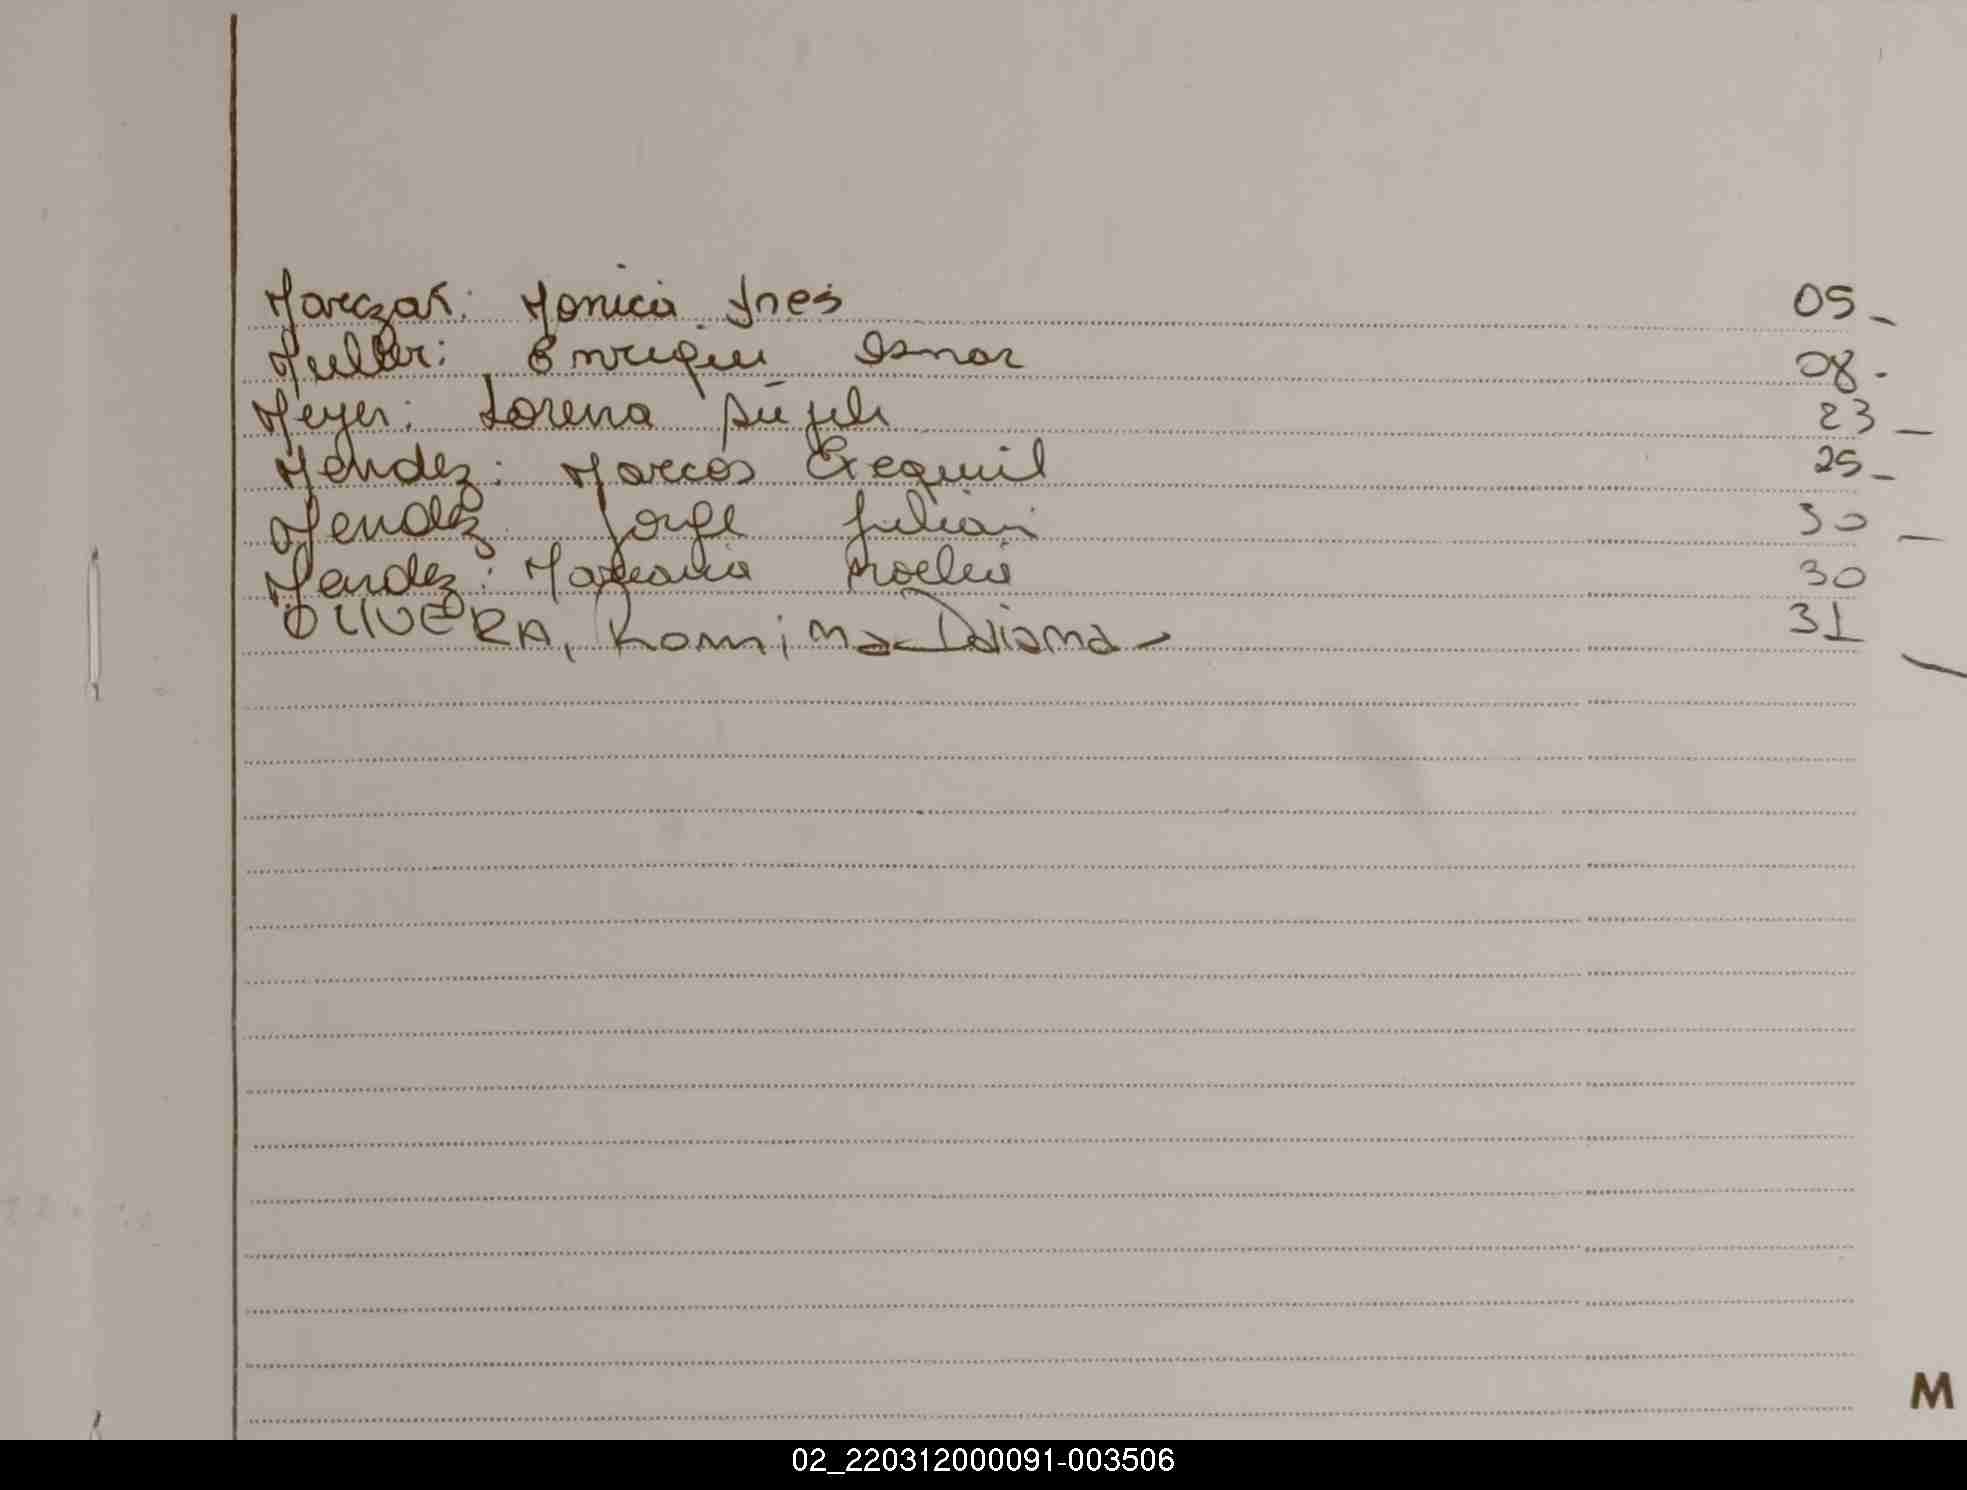 Marczak: Monica Ines 05_
Muller: Enrique Osmar 08.
Meyer: Lorena 23_
Mendez: Marcos Exequiel 25_
Mendez Jorge Julian 30_
Mendez: Mariana Noelia 30
OLIVERA, Romina Daiana 31
M
02_220312000091-003506